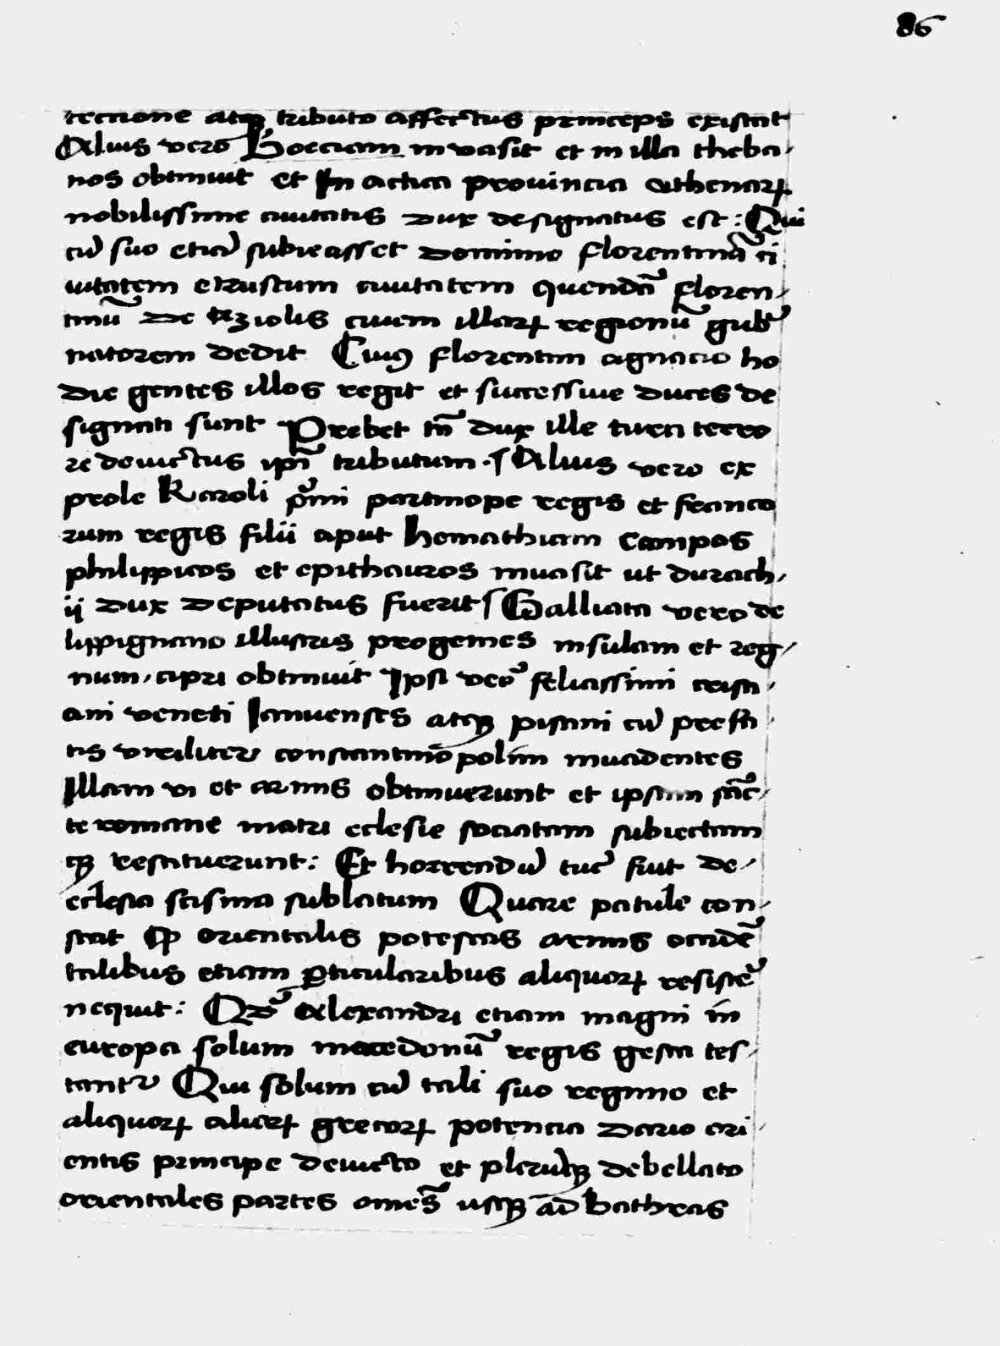 86
tectione atq tributo affectus princeps existat
Alius vero Boeciam invasit et in illa theba-
nos obtinuit et In actica provincia athenaꝝ
nobilissime civitatis dux designatus est : Qui
cū suo etiā subieasset domino florentinā ci
vitatem etruscum civitatem quendā floren-
tinū De azziolis civem illaꝝ regionū gub͛
natorem dedit Cuiꝰ florentini agnacio ho
die gentes illos regit et successive duces de
signati sunt Prebet tn̄ dux ille turci terro
re devictus ipī tributum . Alius vero ex
prole Karoli pͥmi partinope regis et franco
rum regis filii aput Hemathiam campos
philippicos et epithauros invasit ut durach-
ij dux deputatus fuerit Galliata vero de
lippignano illustris progenies insulam et reg-
num cipri obtinuit Ipsi vero felicissimi crist-
ani veneti Ianuenses atq pisani cū prefa-
tis viriliter constantinopolim invadentes
Illam vi et armis obtinuerunt et ipsam sāc-
te romane matri eclesie sociatam subiectam
q restituerunt : Et horrendū tūc fuit de-
eclesia scisma sublatum Quare patule con-
stat ꝙ orientalis potestas armis occidē
talibus etiam ꝑticularibus aliquoꝝ resistē͛
nequit : Qd̄ Alexandri etiam magni in
europa solum macedonū regis gesta tes-
tantᷣ Qui solum cū tali suo regimo et
aliquoꝝ alioꝝ grecoꝝ potencia Dario ori-
entis principe devicto et plerisq debellato
orientales partes omēs usq ad bathras